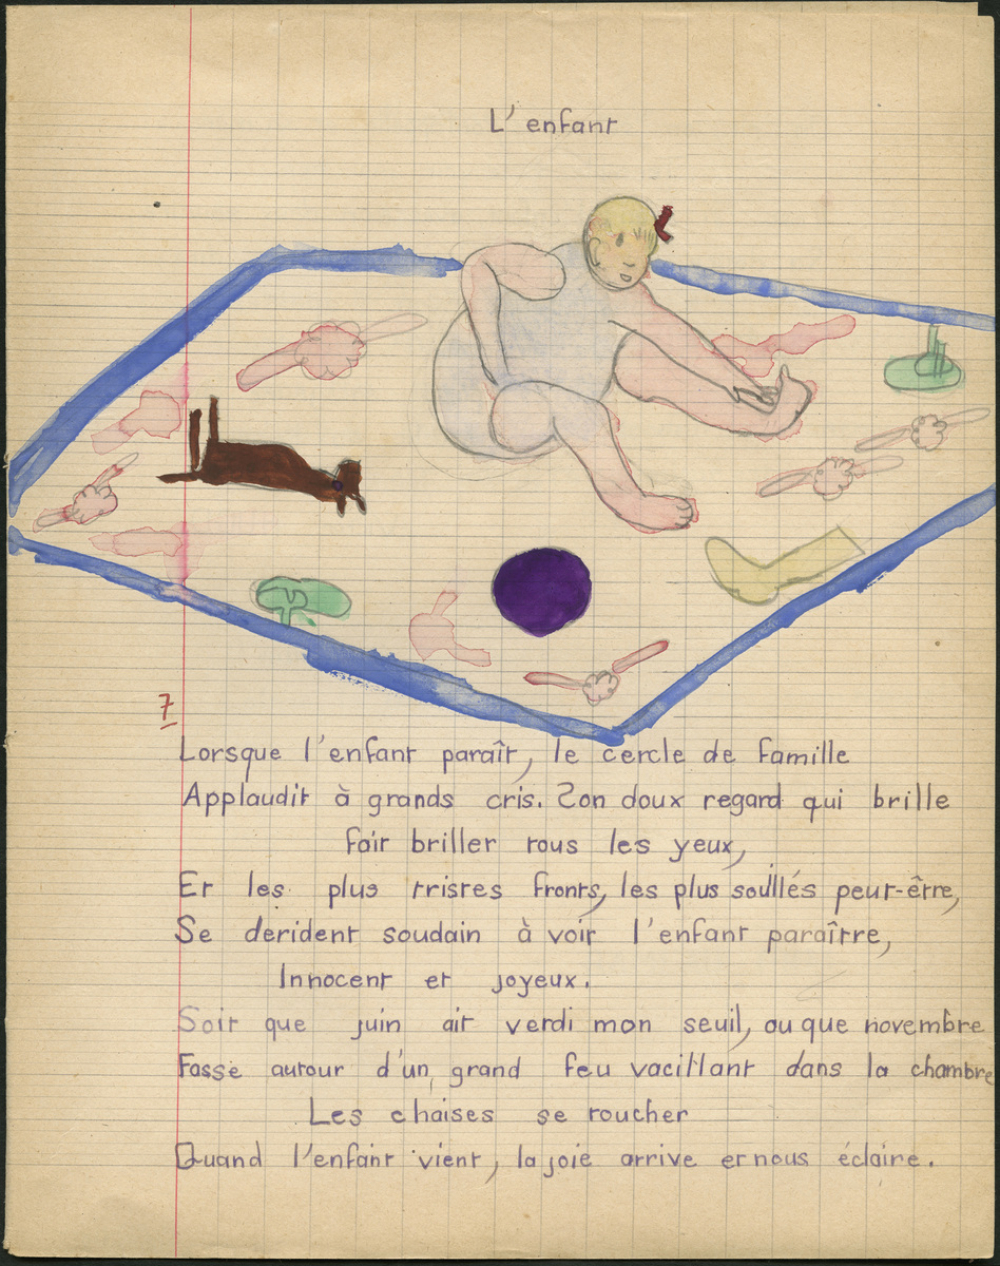 L'enfant
7
Lorsque l'enfant paraît, le cercle de famille
Applaudit à grands cris. Son doux regard qui brille
fait briller tous les yeux,
Et les plus tristes fronts, les plus souillés peut-être,
Se derident soudain à voir l'enfant paraîttre,
Innocent et joyeux.
Soit que juin ait verdi mon seuil, ou que novembre
Fasse autour d'un grand feu vacillant dans la chambre
Les chaises se toucher
Quand l'enfant vient, la joie arrive et nous éclaire.